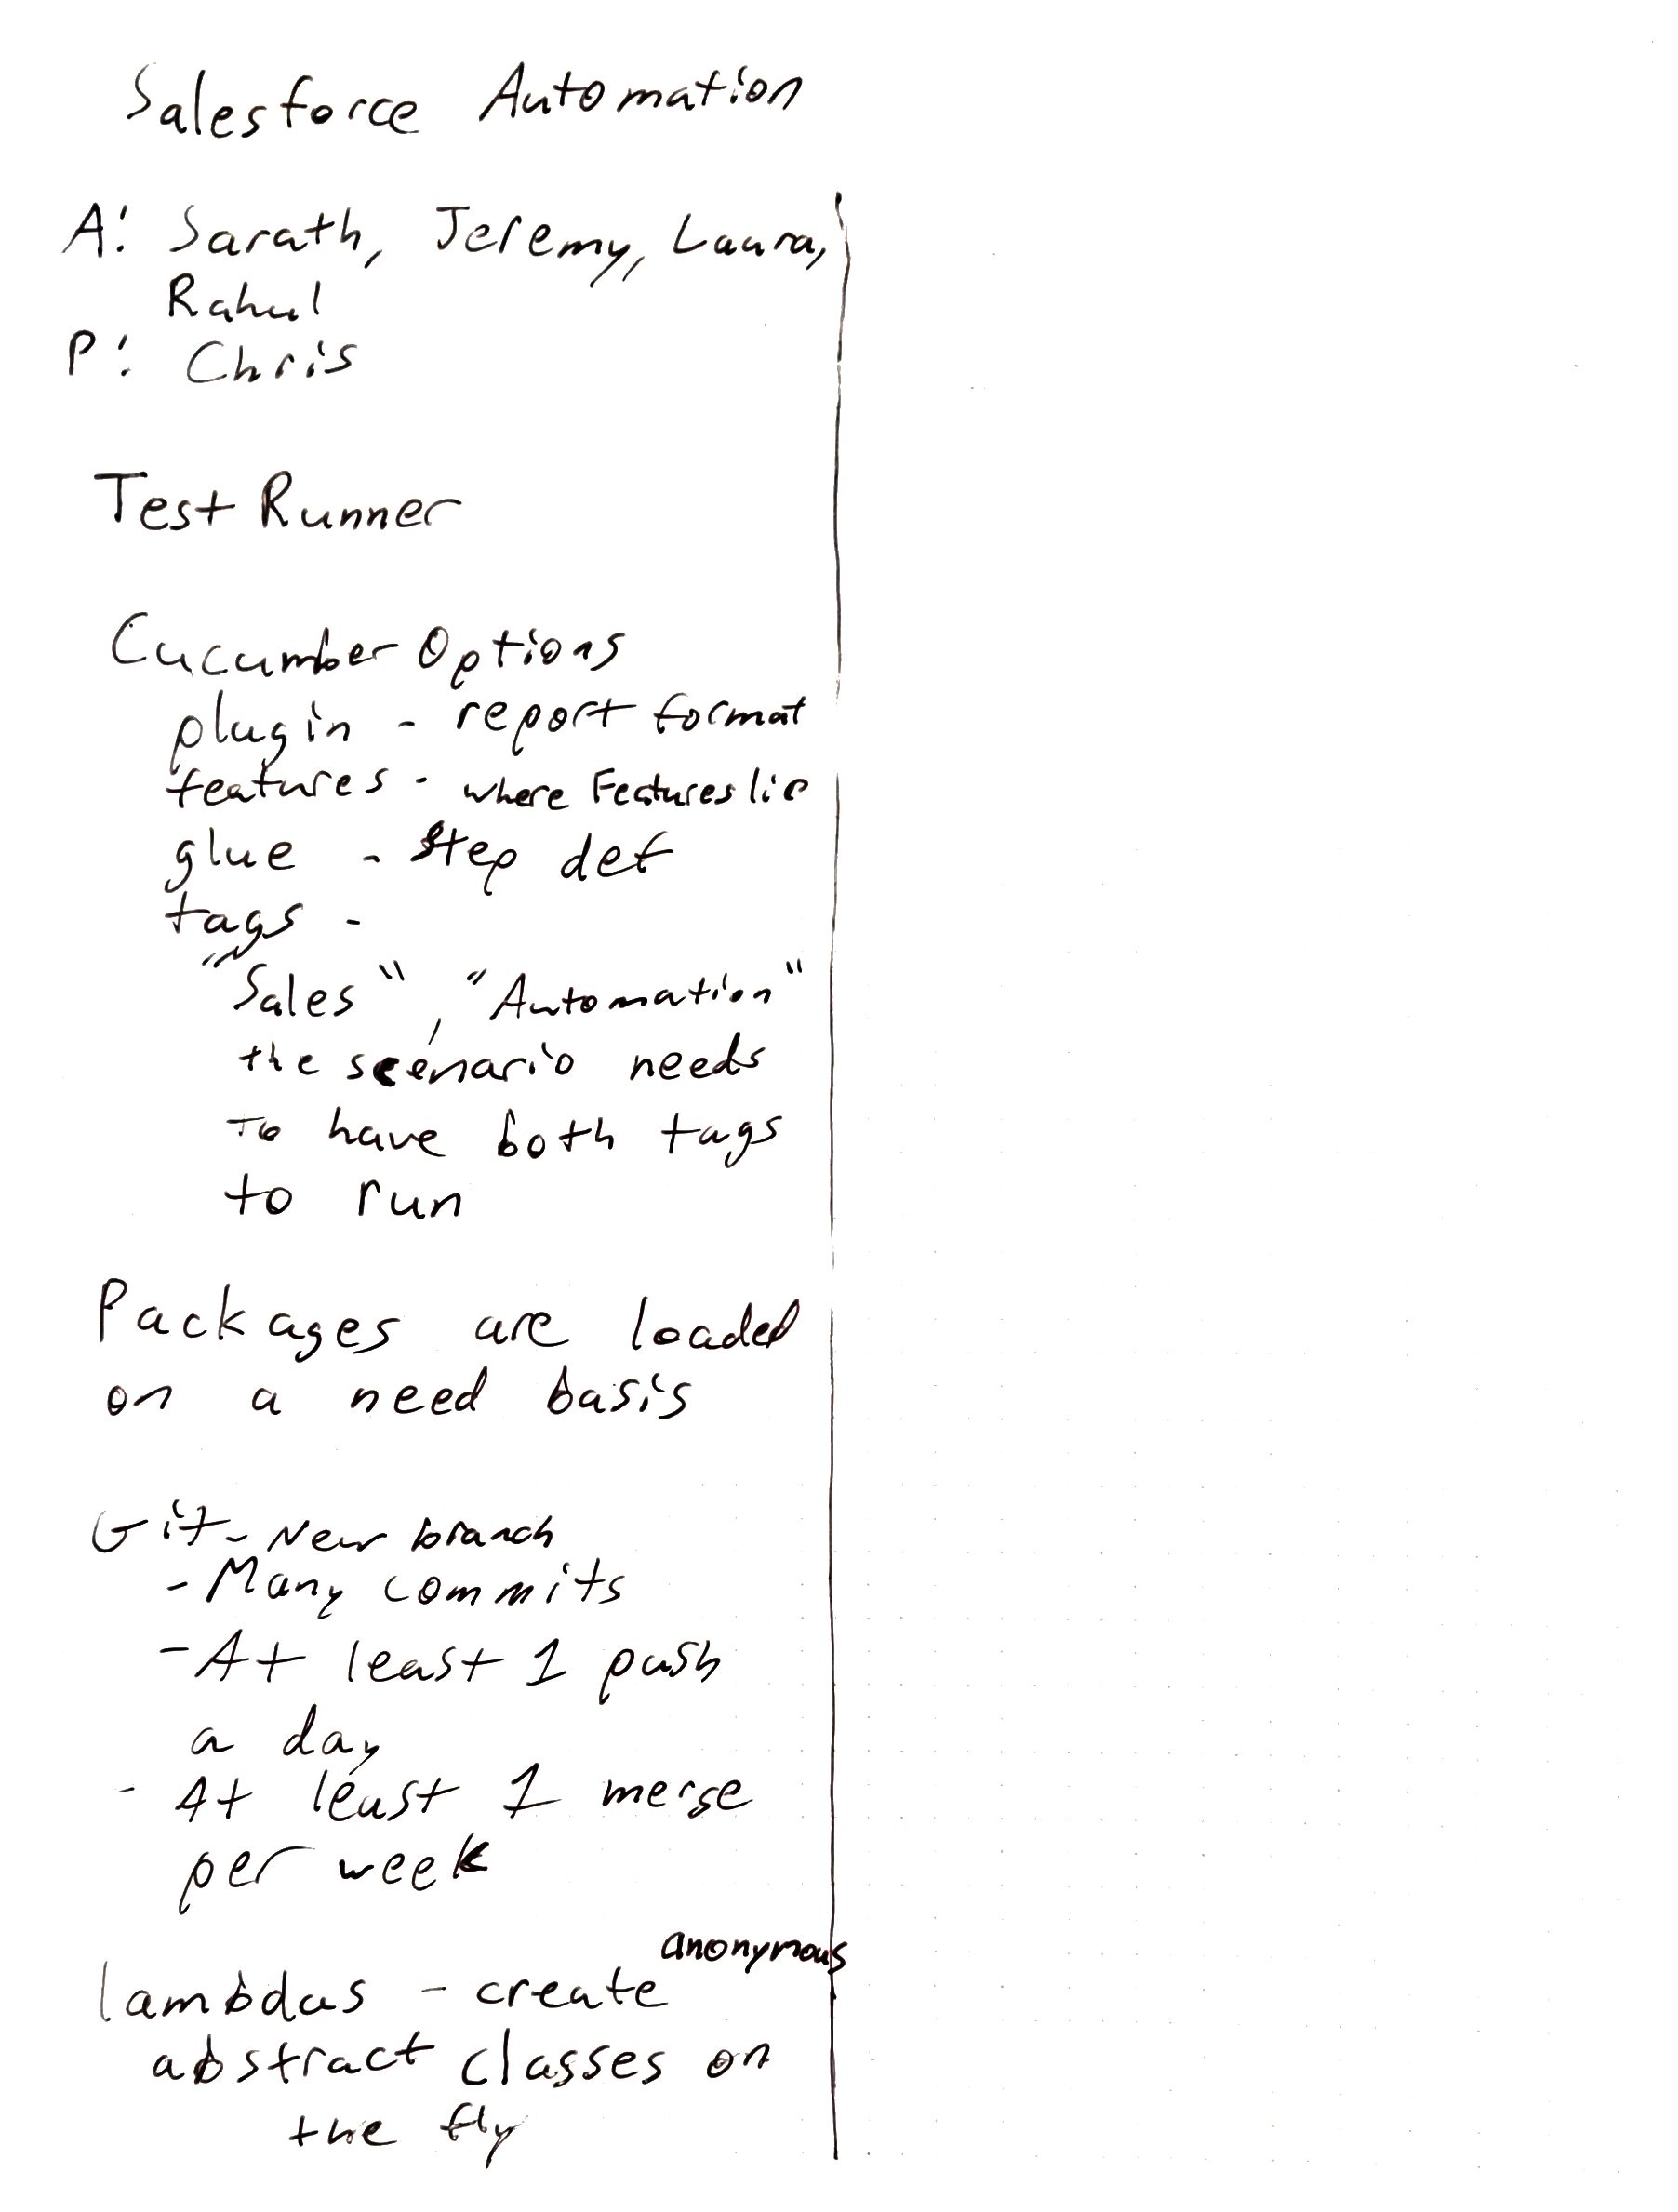 Salesforce Automation
A: Sarath, Jeremy, Laura,
Rahul
P: Chris
Test Runner
Cucumber Options
plugin - report format
features - where Features lie
glue - step def
tags -
"Sales", "Automation"
the scenario needs
To have both tags
to run
Packages are loaded
on a need basis
Git - New branch
- Many commits
- At least 1 push
a day
- At least 1 merge
per week
anonymous
lambdas - create
abstract classes on
the fly